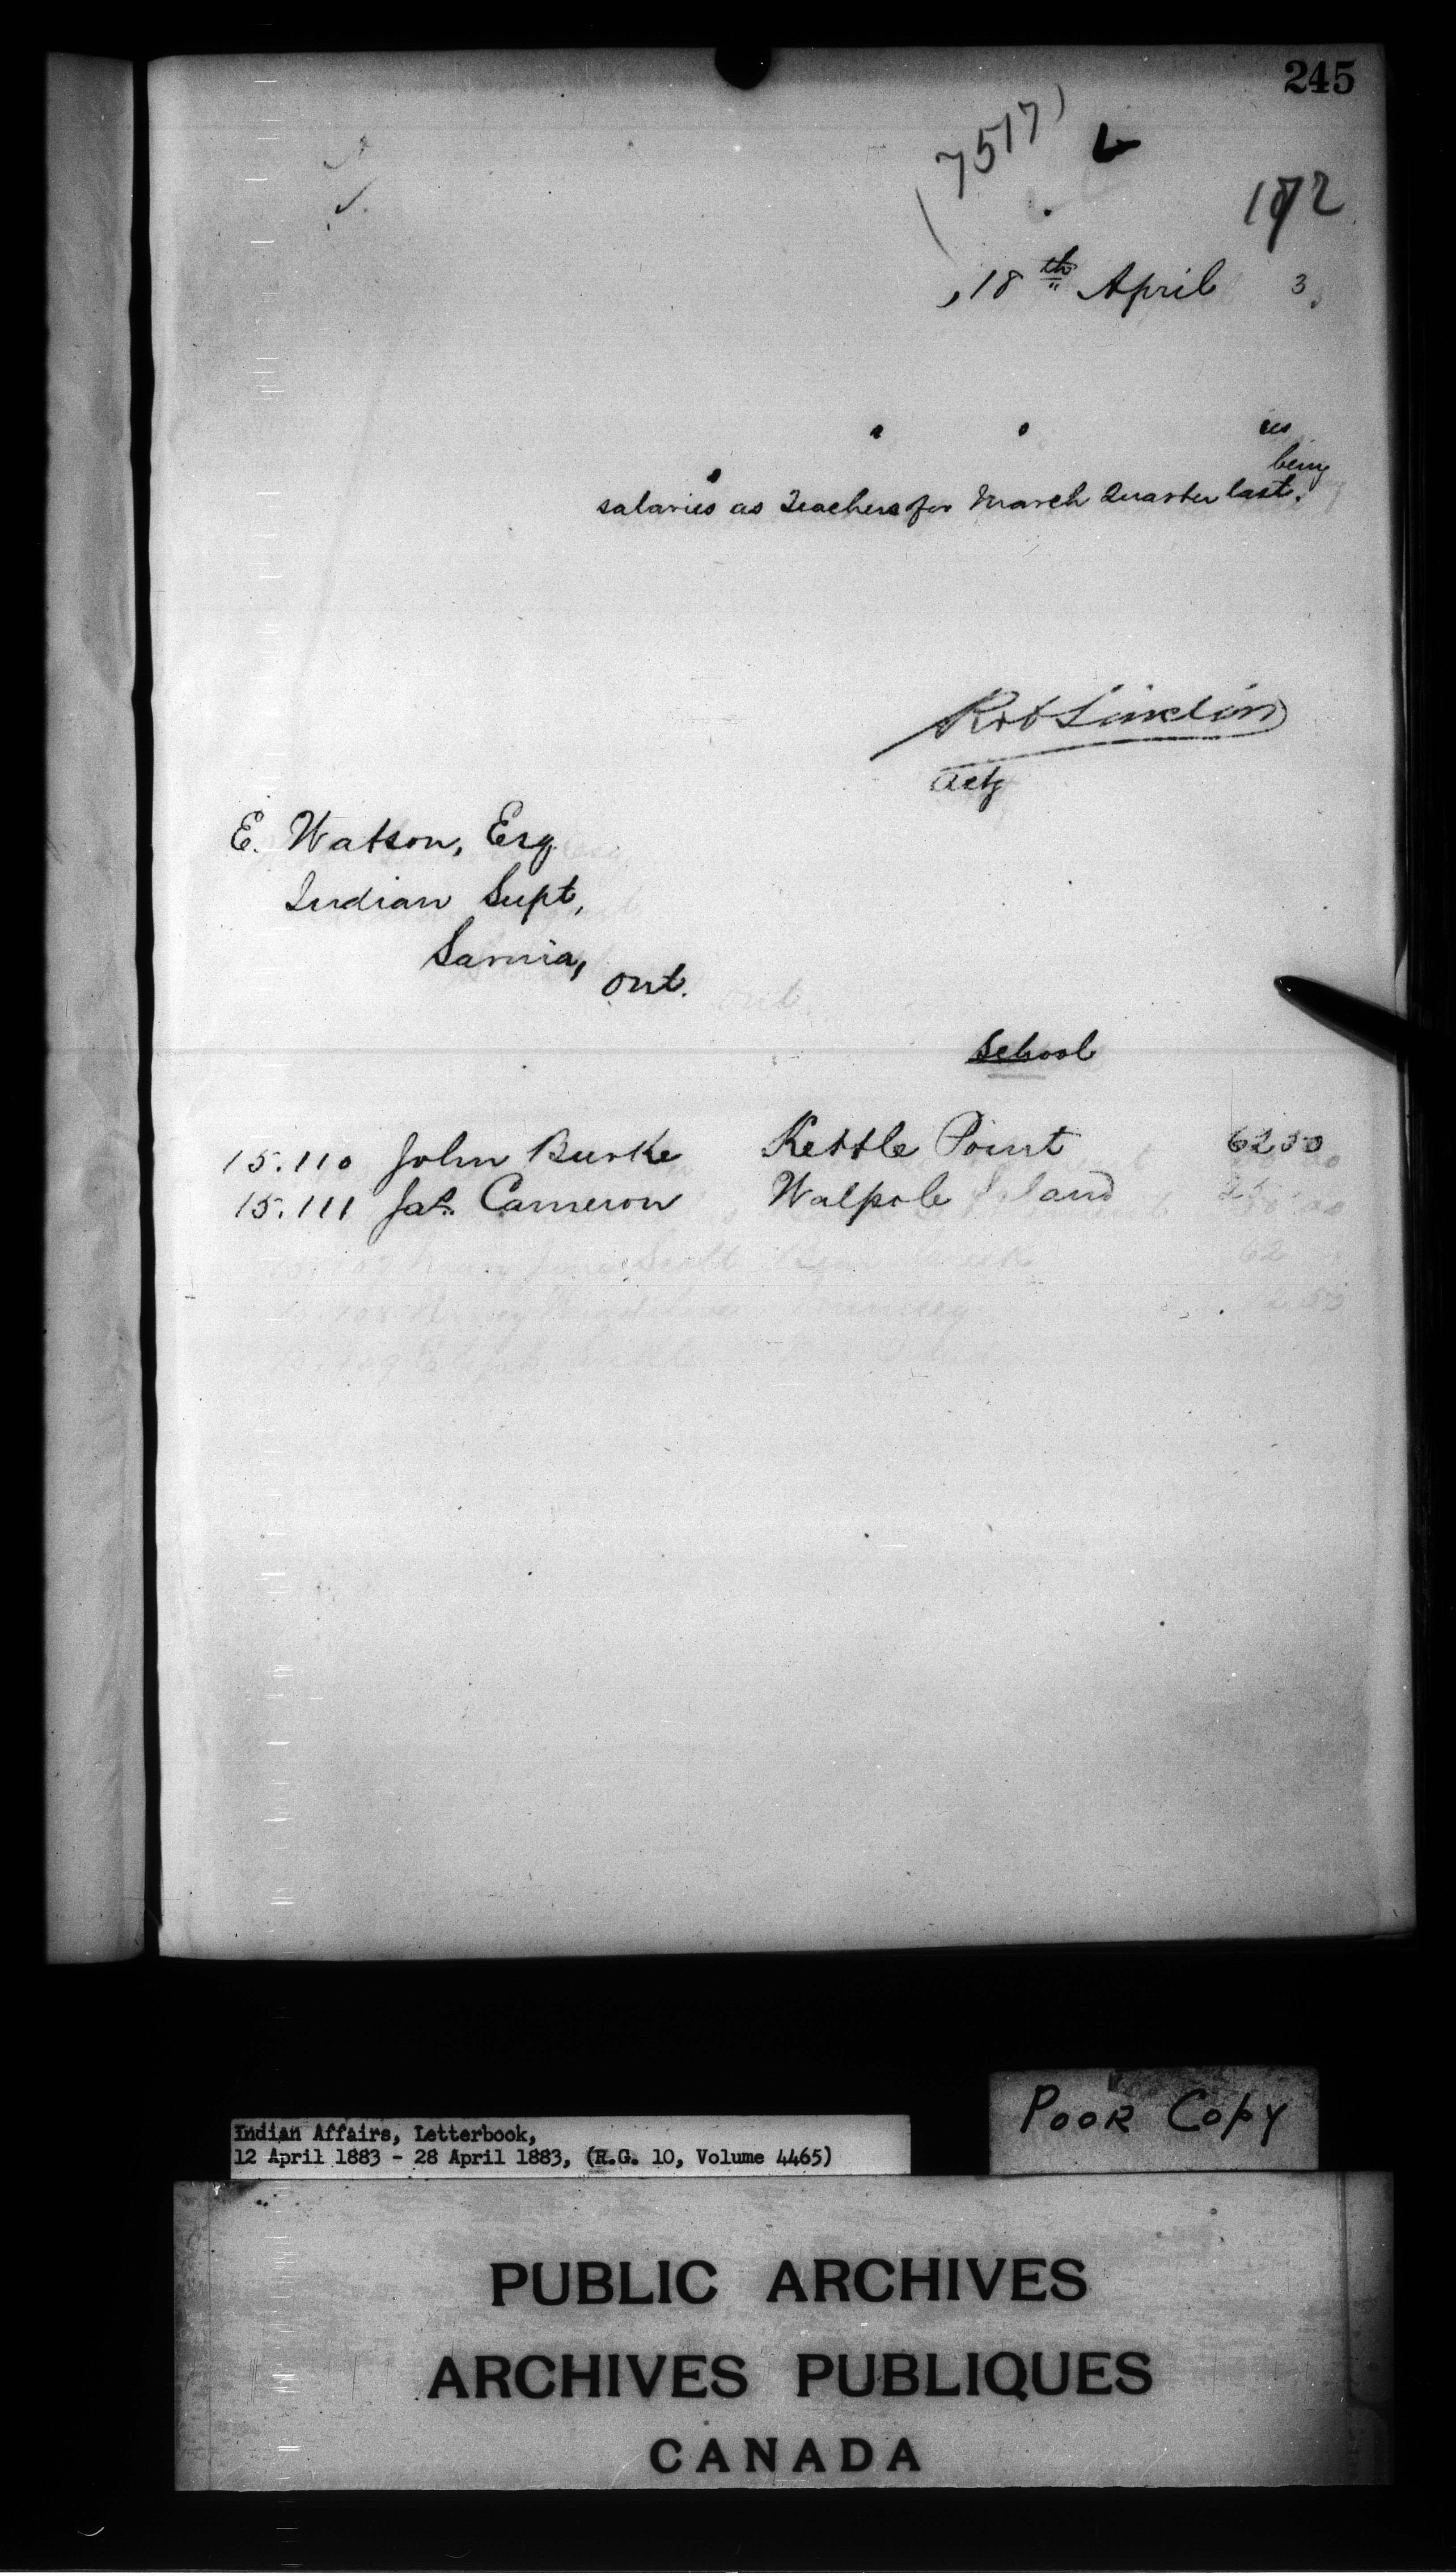 245
(7517)
172
, 18th April 3,
es
being
salaries as Teachers for March Quarter last.
Rob Sinclair
Actg
E. Watson, Esq
Indian Supt,
Sarnia,
Ont.
School
15.110 John Burke Kettle Point 62 50
15.111 Jas. Cameron Walpole Island
POOR COPY
Indian Affairs, Letterbook,
12 April 1883 - 28 April 1883, (R.G. 10, Volume 4465)
PUBLIC ARCHIVES
ARCHIVES PUBLIQUES
CANADA